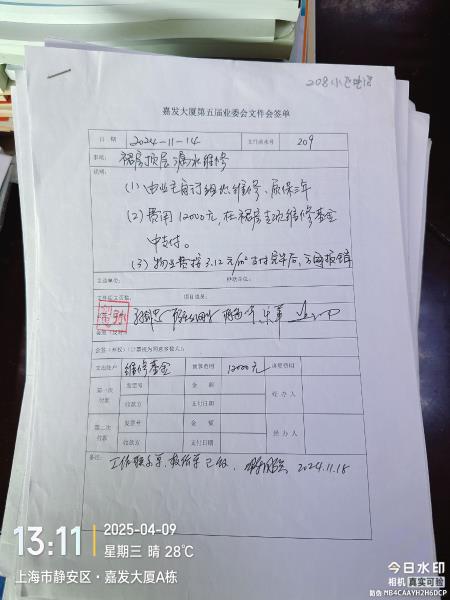 嘉发大厦第五届业委会文件会签单
日 期 2024-11-14 文件流水号 209
事项: 裙房顶层漏水维修
说明:
(1) 由业主自行组织维修、质保三年
(2) 费用12000元, 在裙房主次维修基金
中支付。
(3) 物业费按3.12元/m²支付完毕后,
主送单位: 抄送单位:
会签(并校)(已签视为同意多様式):
支出账户 维修基金 预算费用 12000元 决算费用
第一次付款 发票号 金 额 经 办 人
收款方 支付日期
第二次付款 发票号 金 额 经 办 人
收款方 支付日期
备注: 工作联系单、报价单已做, 2024.11.18
13:11 2025-04-09
星期三 晴 28℃
上海市静安区·嘉发大厦A栋
今日水印
相机 真实可验
防伪 MB4CAAYH2H6DCP